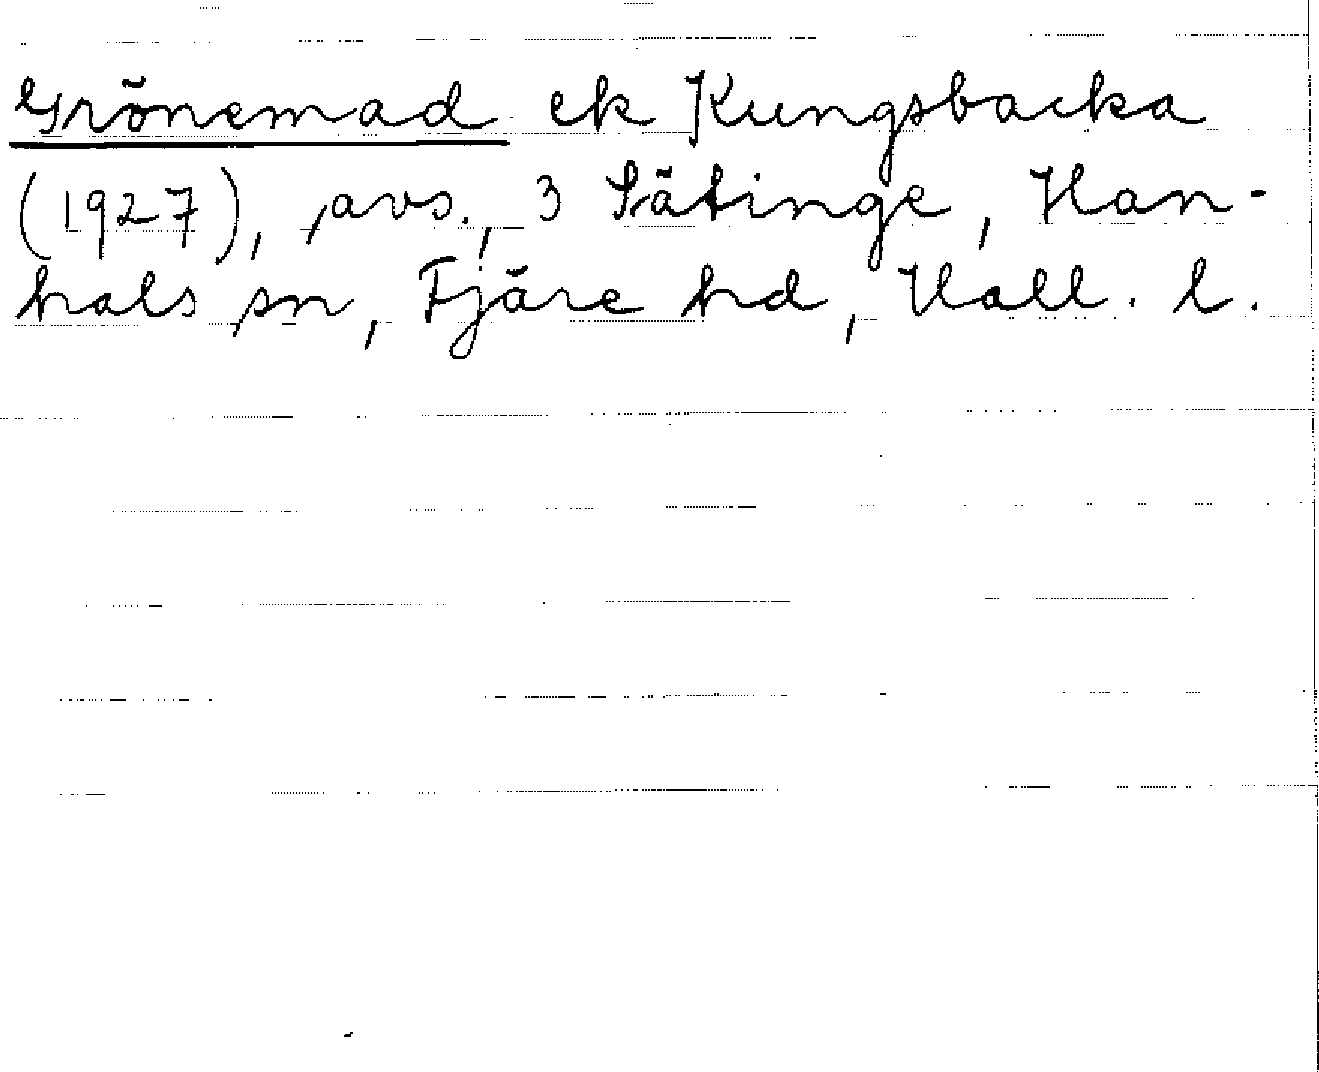 Grönemad ek Kungsbacka
(1927), avs., 3 Sätinge, Han-
hals sn, Fjäre hd, Hall. l.